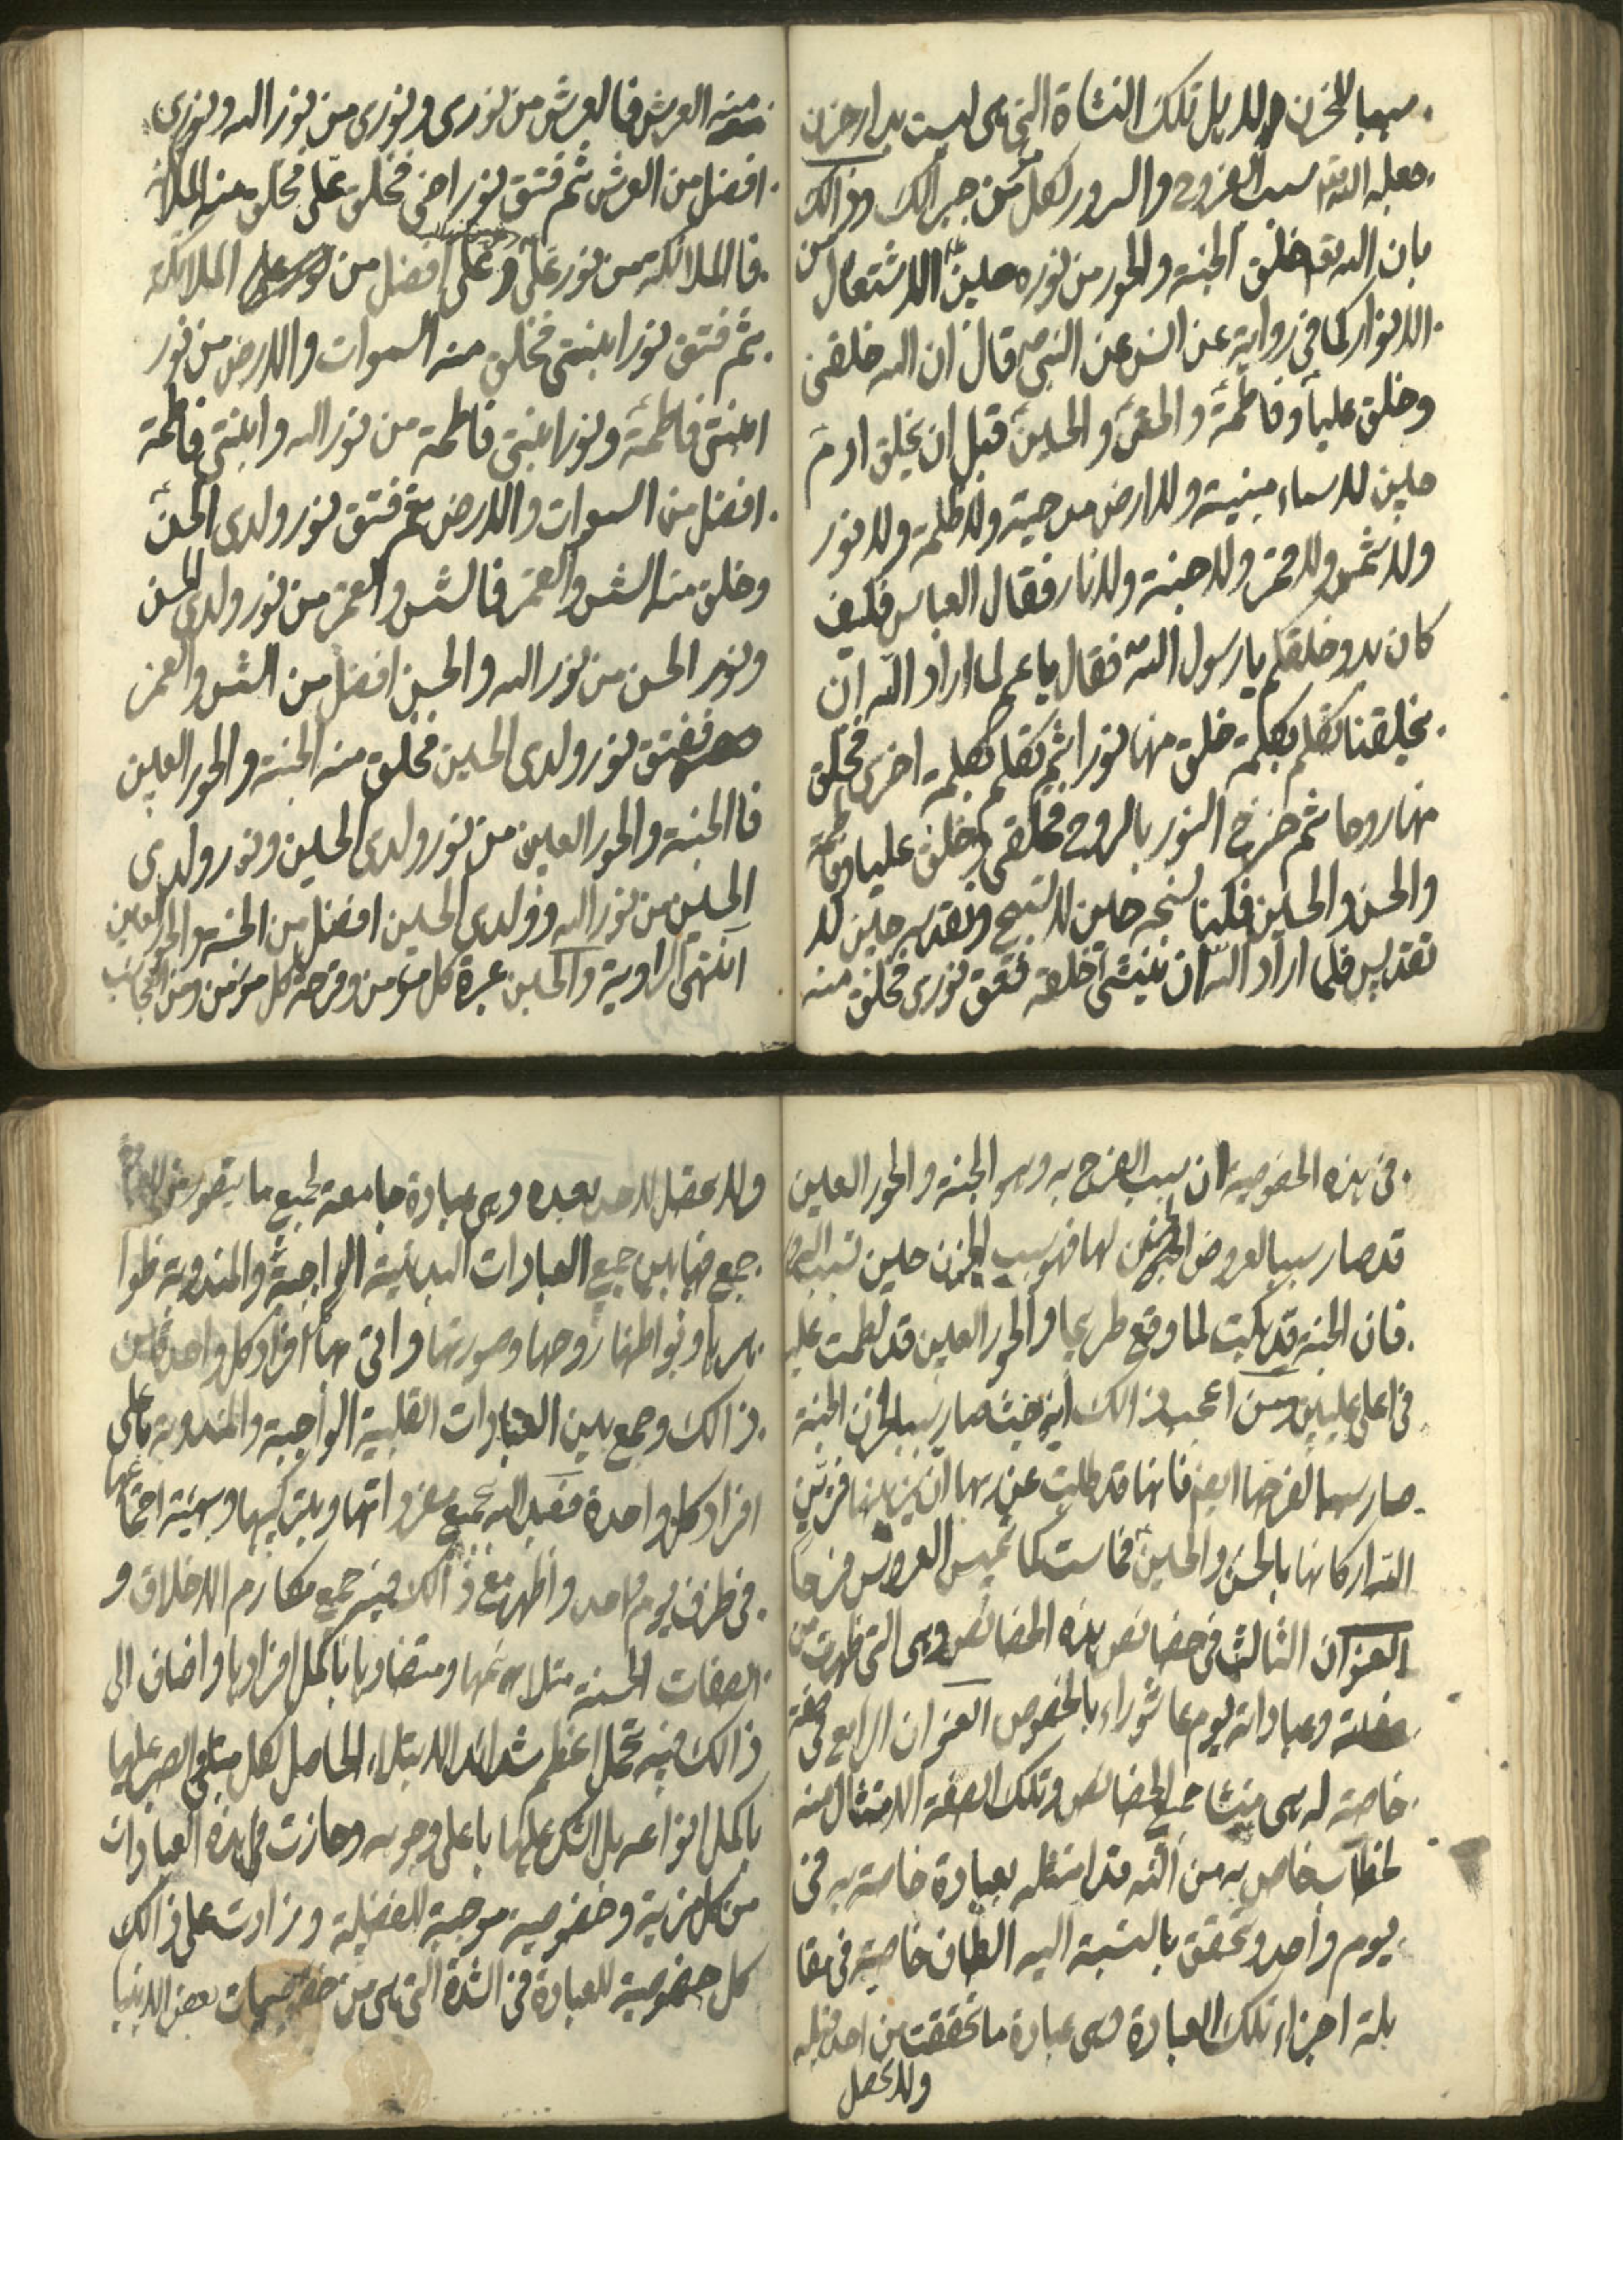 سببا للحزن ولاهل تلك النشاة التي هي ليست بدار حزن
جعله الله تعم سبب الفرح والسرور لكل من جبر الك وذالك
بان الله تعم خلق الجنة والحور من نوره حين الاشتعال من
الانوار كما في رواية عن انس عن النبي ص قال ان الله خلقني
وخلق عليا وفاطمة والحسن والحسين قبل ان يخلق ادم
حين لا سماء مبنية ولا ارض مدحية ولا ظلمة ولا نور
ولا شمس ولا قمر ولا جنة ولا نار فقال العباس فكيف
كان بدو خلقكم يا رسول الله فقال يا عم لما اراد الله ان
يخلقنا تكلم بكلمة خلق منها نورا ثم تكلم بكلمة اخرى فخلق
منها روحا ثم مزج النور بالروح فخلقني وخلق عليا وفاطمة
والحسن والحسين فكنا نسبحه حين لا تسبيح ونقدسه حين لا
تقديس فلما اراد الله ان ينشئ خلقه فتق نوري فخلق منه
منه العرش فالعرش من نوري ونوري من نور الله ونوري
افضل من العرش ثم فتق نور اخي فخلق علي فخلق منه الملائكة
فالملائكة من نور علي وعلي افضل من الملائكة
ثم فتق نور ابنتي فخلق منه السموات والارض من نور
ابنتي فاطمة ونور ابنتي فاطمة من نور الله وابنتي فاطمة
افضل من السموات والارض ثم فتق نور ولدي الحسن
وخلق منه الشمس والقمر فالشمس والقمر من نور ولدي الحسن
ونور الحسن من نور الله والحسن افضل من الشمس والقمر
ففتق نور ولدي الحسين فخلق منه الجنة والحور العين
فالجنة والحور العين من نور ولدي الحسين ونور ولدي
الحسين من نور الله وولدي الحسين افضل من الجنة والحور العين
انتهى الرواية والحسين عبرة كل مؤمن وفرحة كل مؤمن ومن العجائب
في هذه الخصوصية ان سبب الفرح به وهو الجنة والحور العين
قد صار سببا لعروض الحزن لها فهو سبب الحزن حين
فان الجنة قد بكيت لما وقع طريحا والحور العين قد لطمت عليه
في اعلى عليين ومن اعجب ذالك انه حيث صار سببا لحزن الجنة
صار سببا لفرحها ايضا فانها قد طلبت عن ربها ان يزينها فزين
الله اركانها بالحسن والحسين فماست كما تميس العروس فرحا
العنوان الثالث في خصائص هذه الخصائص وهي التي ظهرت من
وعباداته يوم عاشوراء بالخصوص العنوان الرابع في صفة
خاصة له هي منشا جميع الخصائص وتلك الصفة الامتثال منه
لخطاب خاص به من الله قد امتثله بعبادة خاصة به في
يوم واحد وتحقق بالنسبة اليه الطاف خاصية في مقا
بلة اجزاء تلك العبادة وهي عبادة ما تحققت من احد قبله
ولا تحصل
ولا تحصل لاحد بعده وهي عبادة جامعة لجميع ما يتصور من
جمع فيها بين جميع العبادات البدنية الواجبة والمندوبة ظوا
هرها وبواطنها روحها وصورتها واتى بها افراد كل واحد
ذالك وجمع بين العبادات القلبية الواجبة والمندوبة باعلى
افراد كل واحدة فعبد الله بجميع مفرداتها وبتركيبها وبهيئة اجتماعها
في ظرف يوم واحد واظهر مع ذالك فيه جميع مكارم الاخلاق و
الصفات الحسنة متلائمها ومتضادها باكمل افرادها واضاف الى
ذالك فيه تحمل اعظم شدائد الابتلاء الحاصل لكل مبتلى والصبر عليها
باكمل انواعه بل الشكر عليها باعلى وجوهه وحازت في هذه العبادات
من كل مزية وخصوصية موجبة للفضيلة وزادت على ذالك
كل خصوصية للعبادة في الشدة التي هي من خصوصيات بعض الانبيا